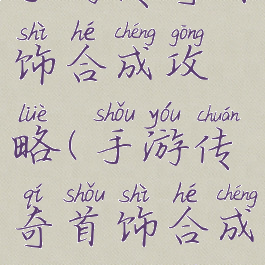 shì hé chéng gōng
饰合成攻
lüè shǒu yóu chuán
略(手游传
qí shǒu shì hé chéng
奇首饰合成